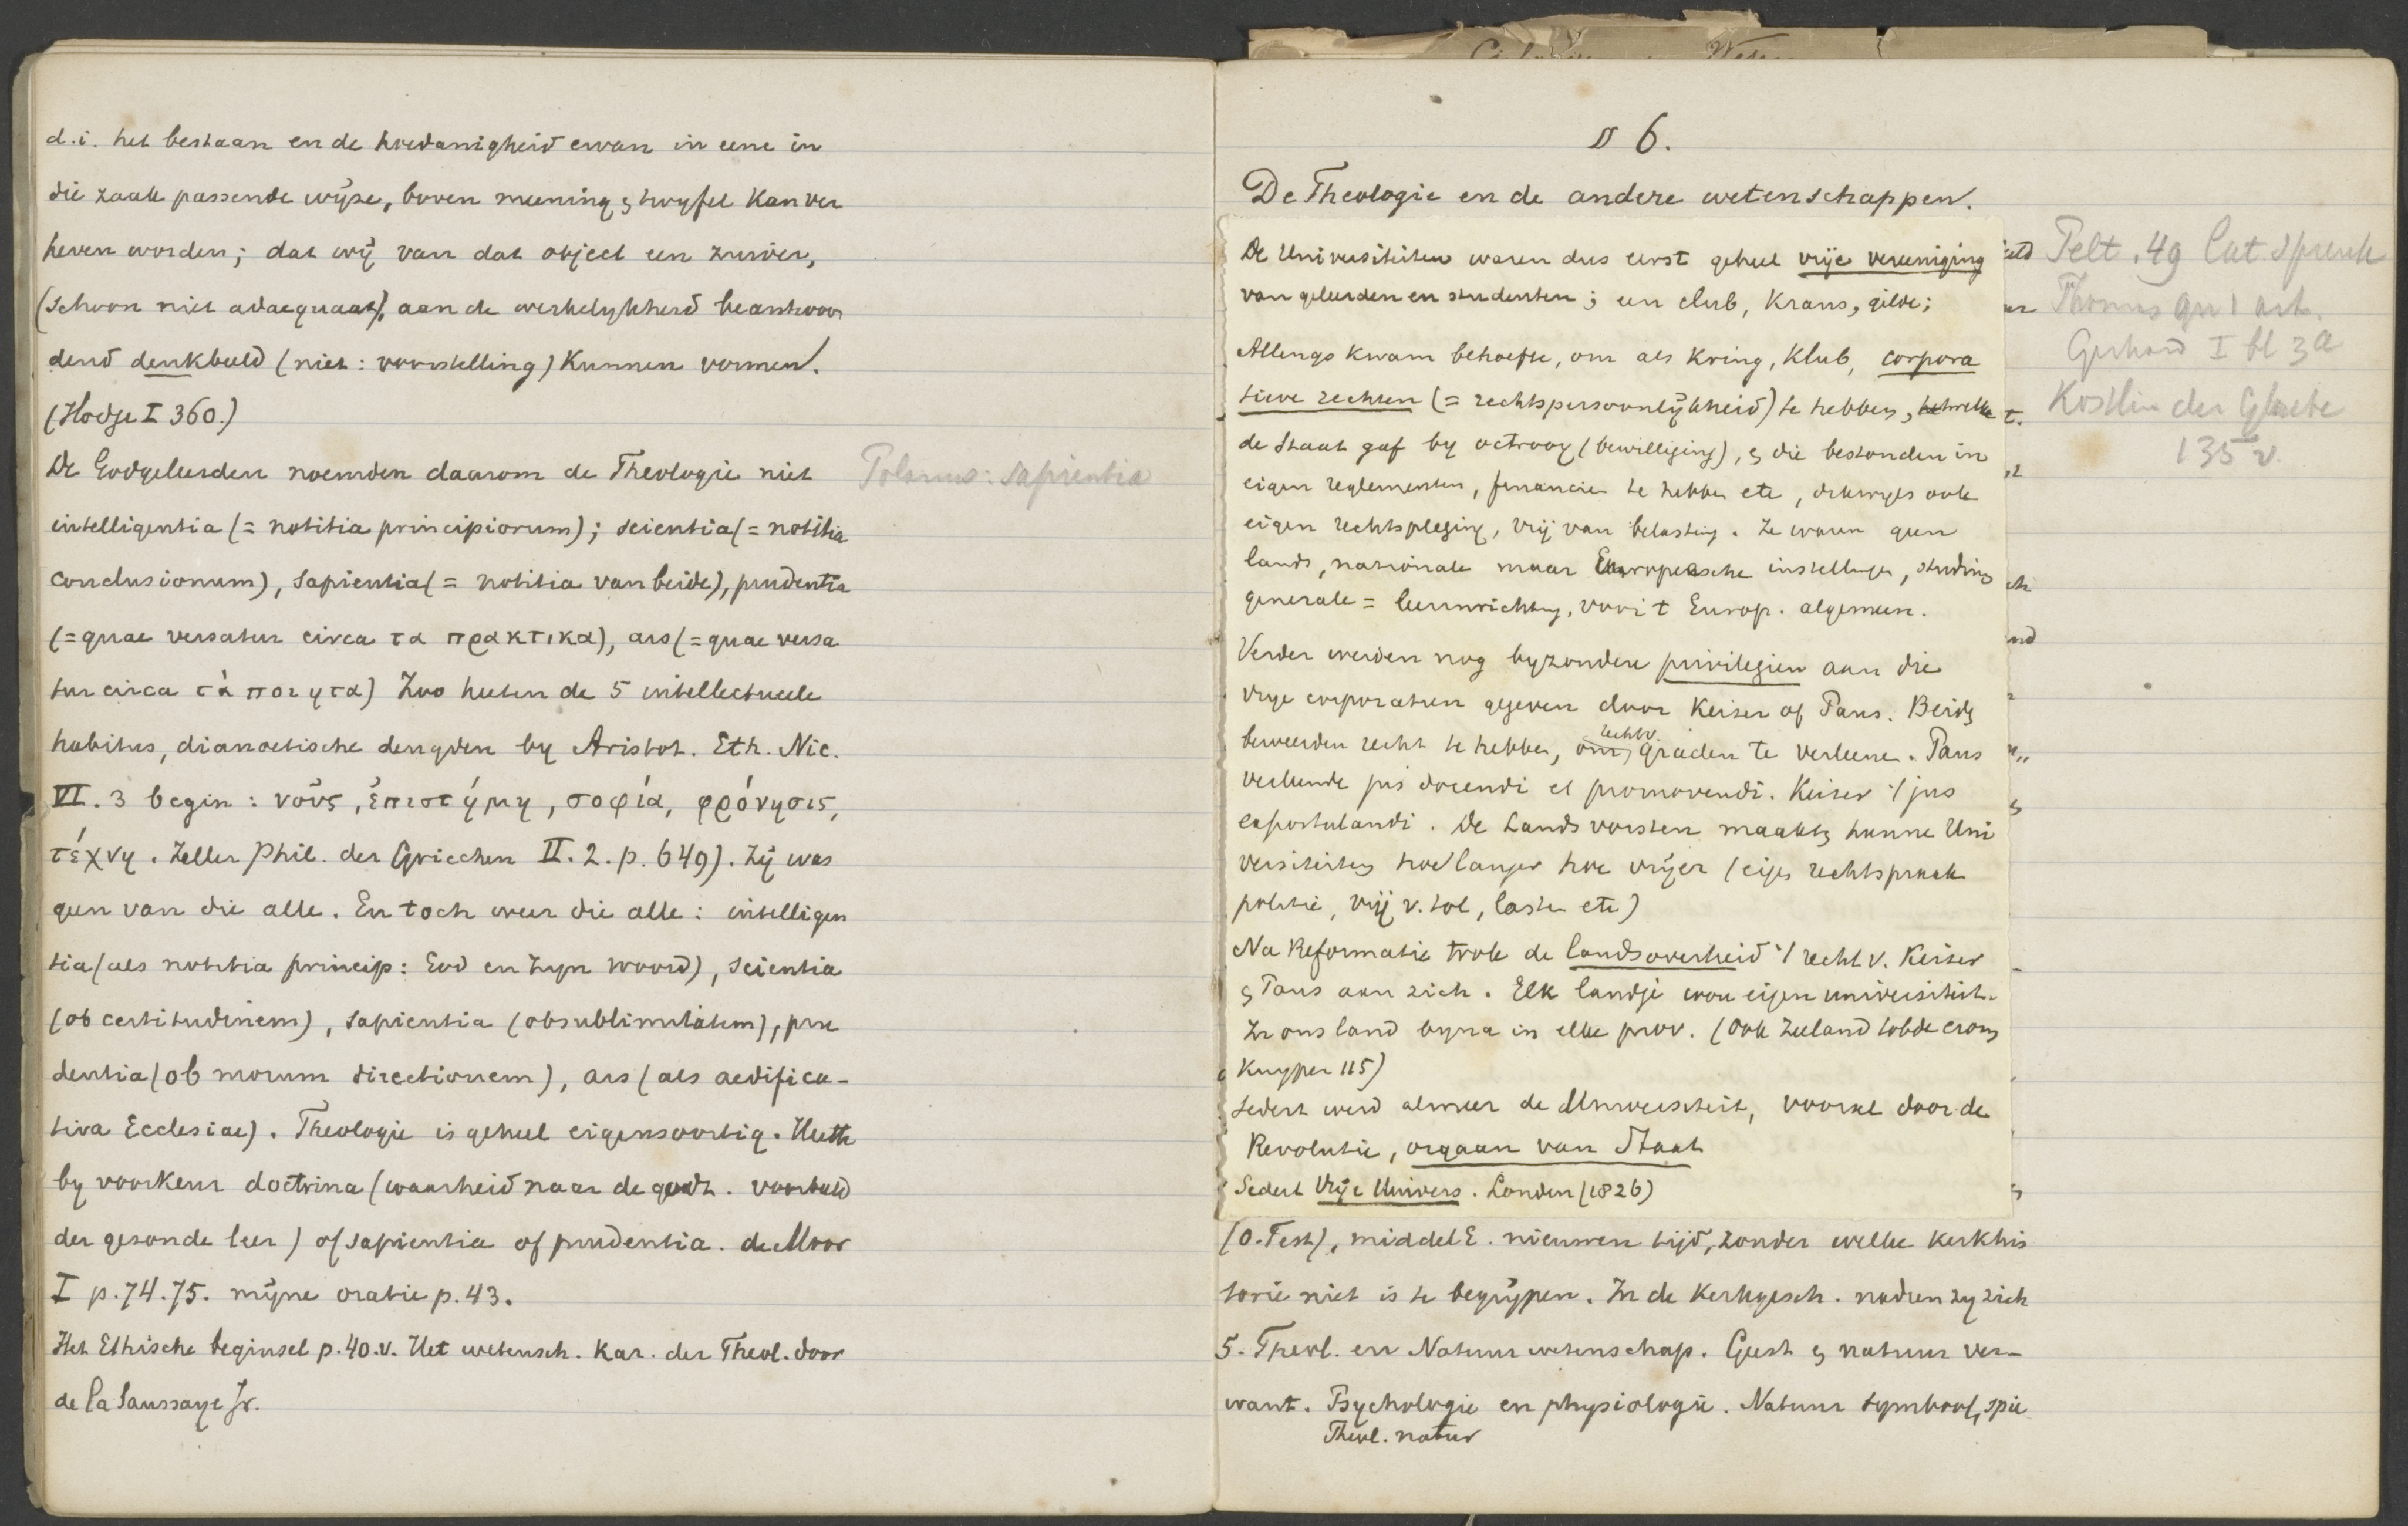 d.i. het bestaan en de hoedanigheid ervan in eene in
die zaak passende wijze, boven meening & twyfel kan ver
heven worden; dat wij van dat object een zuiver,
(schoon niet adaequaat), aan de werkelykheid beantwoor
dend denkbeeld (niet: voorstelling) kunnen vormen.
(Hodge I 360.)
De Godgeleerden noemden daarom de Theologie niet
Polanus: sapientia
intelligentia (= notitia principiorum); scientia (= notitia
conclusionum), sapientia (= notitia van beide), prudentia
(= quae versatur circa τα πρακτικα), ars (= quae versa
tur circa τὰ ποιητα) Zoo heeten de 5 intellectueele
habitus, dianoetische deugden by Aristot. Eth. Nic.
VI. 3 begin: νοῦς, ἐπιστήμη, σοφία, φρόνησις,
τέχνη. Zeller Phil. der Griechen II. 2. p. 649). Zij was
geen van die alle. En toch weer die alle: intelligen
tia (als notitia princip: God en Zyn woord), scientia
(ob certitudinem), sapientia (ob sublimitatem), pru
dentia (ob morum directionem), ars (als aedifica-
tiva Ecclesiae). Theologie is geheel eigensoortig. Heette
by voorkeur doctrina (waarheid naar de godz. voorbeeld
der gezonde leer) of sapientia of prudentia. de Moor
I p. 74. 75. mijne oratie p. 43.
Het Ethische beginsel p. 40. v. Het wetensch. kar. der Theol. door
de la Saussaye Jr.
§ 6.
De Theologie en de andere wetenschappen.
De Universiteiten waren dus eerst geheel vrije vereeniging
van geleerden en studenten; een club, krans, gilde;
Allengs kwam behoefte, om als kring, klub, corpora
tieve rechten (= rechtspersoonlijkheid) te hebben, hetwelke
de Staat gaf by octrooy (bewilliging), & die bestonden in
eigen reglementen, financien te hebben etc, dikwyls ook
eigen rechtspleging, vrij van belasting. Ze waren geen
lands, nationale maar Europeesche instellingen, studium
generale = leerinrichting, voor 't Europ. algemeen.
Verder werden nog byzondere privilegien aan die
vrye corporatien gegeven door Keizer of Paus. Beide
beweerden recht te hebben, om rechtv. graden te verleenen. Paus
verleende jus docendi et promovendi. Keizer 't jus
expostulandi. De Landsvorsten maakten hunne Uni
versiteiten hoe langer hoe vrijer (eigen rechtspraak
politie, vrij v. tol, lasten etc)
Na Reformatie trok de landsoverheid 't recht v. Keizer
& Paus aan zich. Elk landje wou eigen universiteit.
In ons land byna in elke prov. (Ook Zeeland tobde erom
Kuyper 115)
Sedert werd al meer de Universiteit, vooral door de
Revolutie, orgaan van Staat
Sedert Vrije Univers. Londen (1826)
(O. Test), middel E. nieuwen tijd, zonder welke kerkhis
torie niet is te begrijpen. In de Kerkgesch. naderen zy zich
5. Theol. en Natuurwetenschap. Geest & natuur ver-
want. Psychologie en physiologie. Natuur symbool, spie
Theol. natur
Pelt. 49
Thomas qu 1 art.
Gerhard I bl 3a
Kostlin der Glaube
135 v.